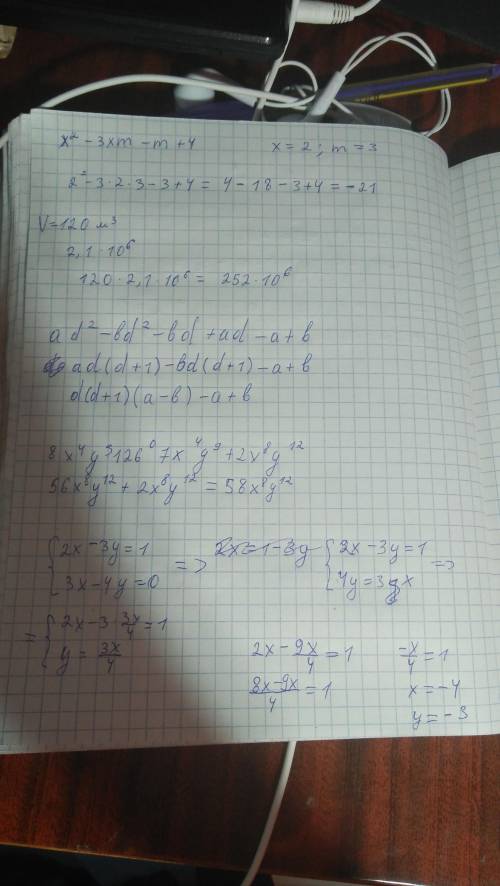 x² - 3xm - m + 4 x = 2 ; m = 3
2² - 3 · 2 · 3 - 3 + 4 = 4 - 18 - 3 + 4 = -21
V = 120 м³
2,1 · 10⁶
120 · 2,1 · 10⁶ = 252 · 10⁶
ad² - bd² - bd + ad - a + b
ad(d+1) - bd(d+1) - a + b
d(d+1)(a-b) - a + b
8x⁴y³126⁰7x⁴y⁹ + 2x⁸y¹²
56x⁸y¹² + 2x⁸y¹² = 58x⁸y¹²
{2x - 3y = 1 => 2x = 1 - 3y {2x - 3y = 1 =>
{3x - 4y = 0 {4y = 3x
= {2x - 3 · 3x/4 = 1 2x - 9x/4 = 1 -x/4 = 1
{y = 3x/4 8x - 9x/4 = 1 x = -4
y = -3